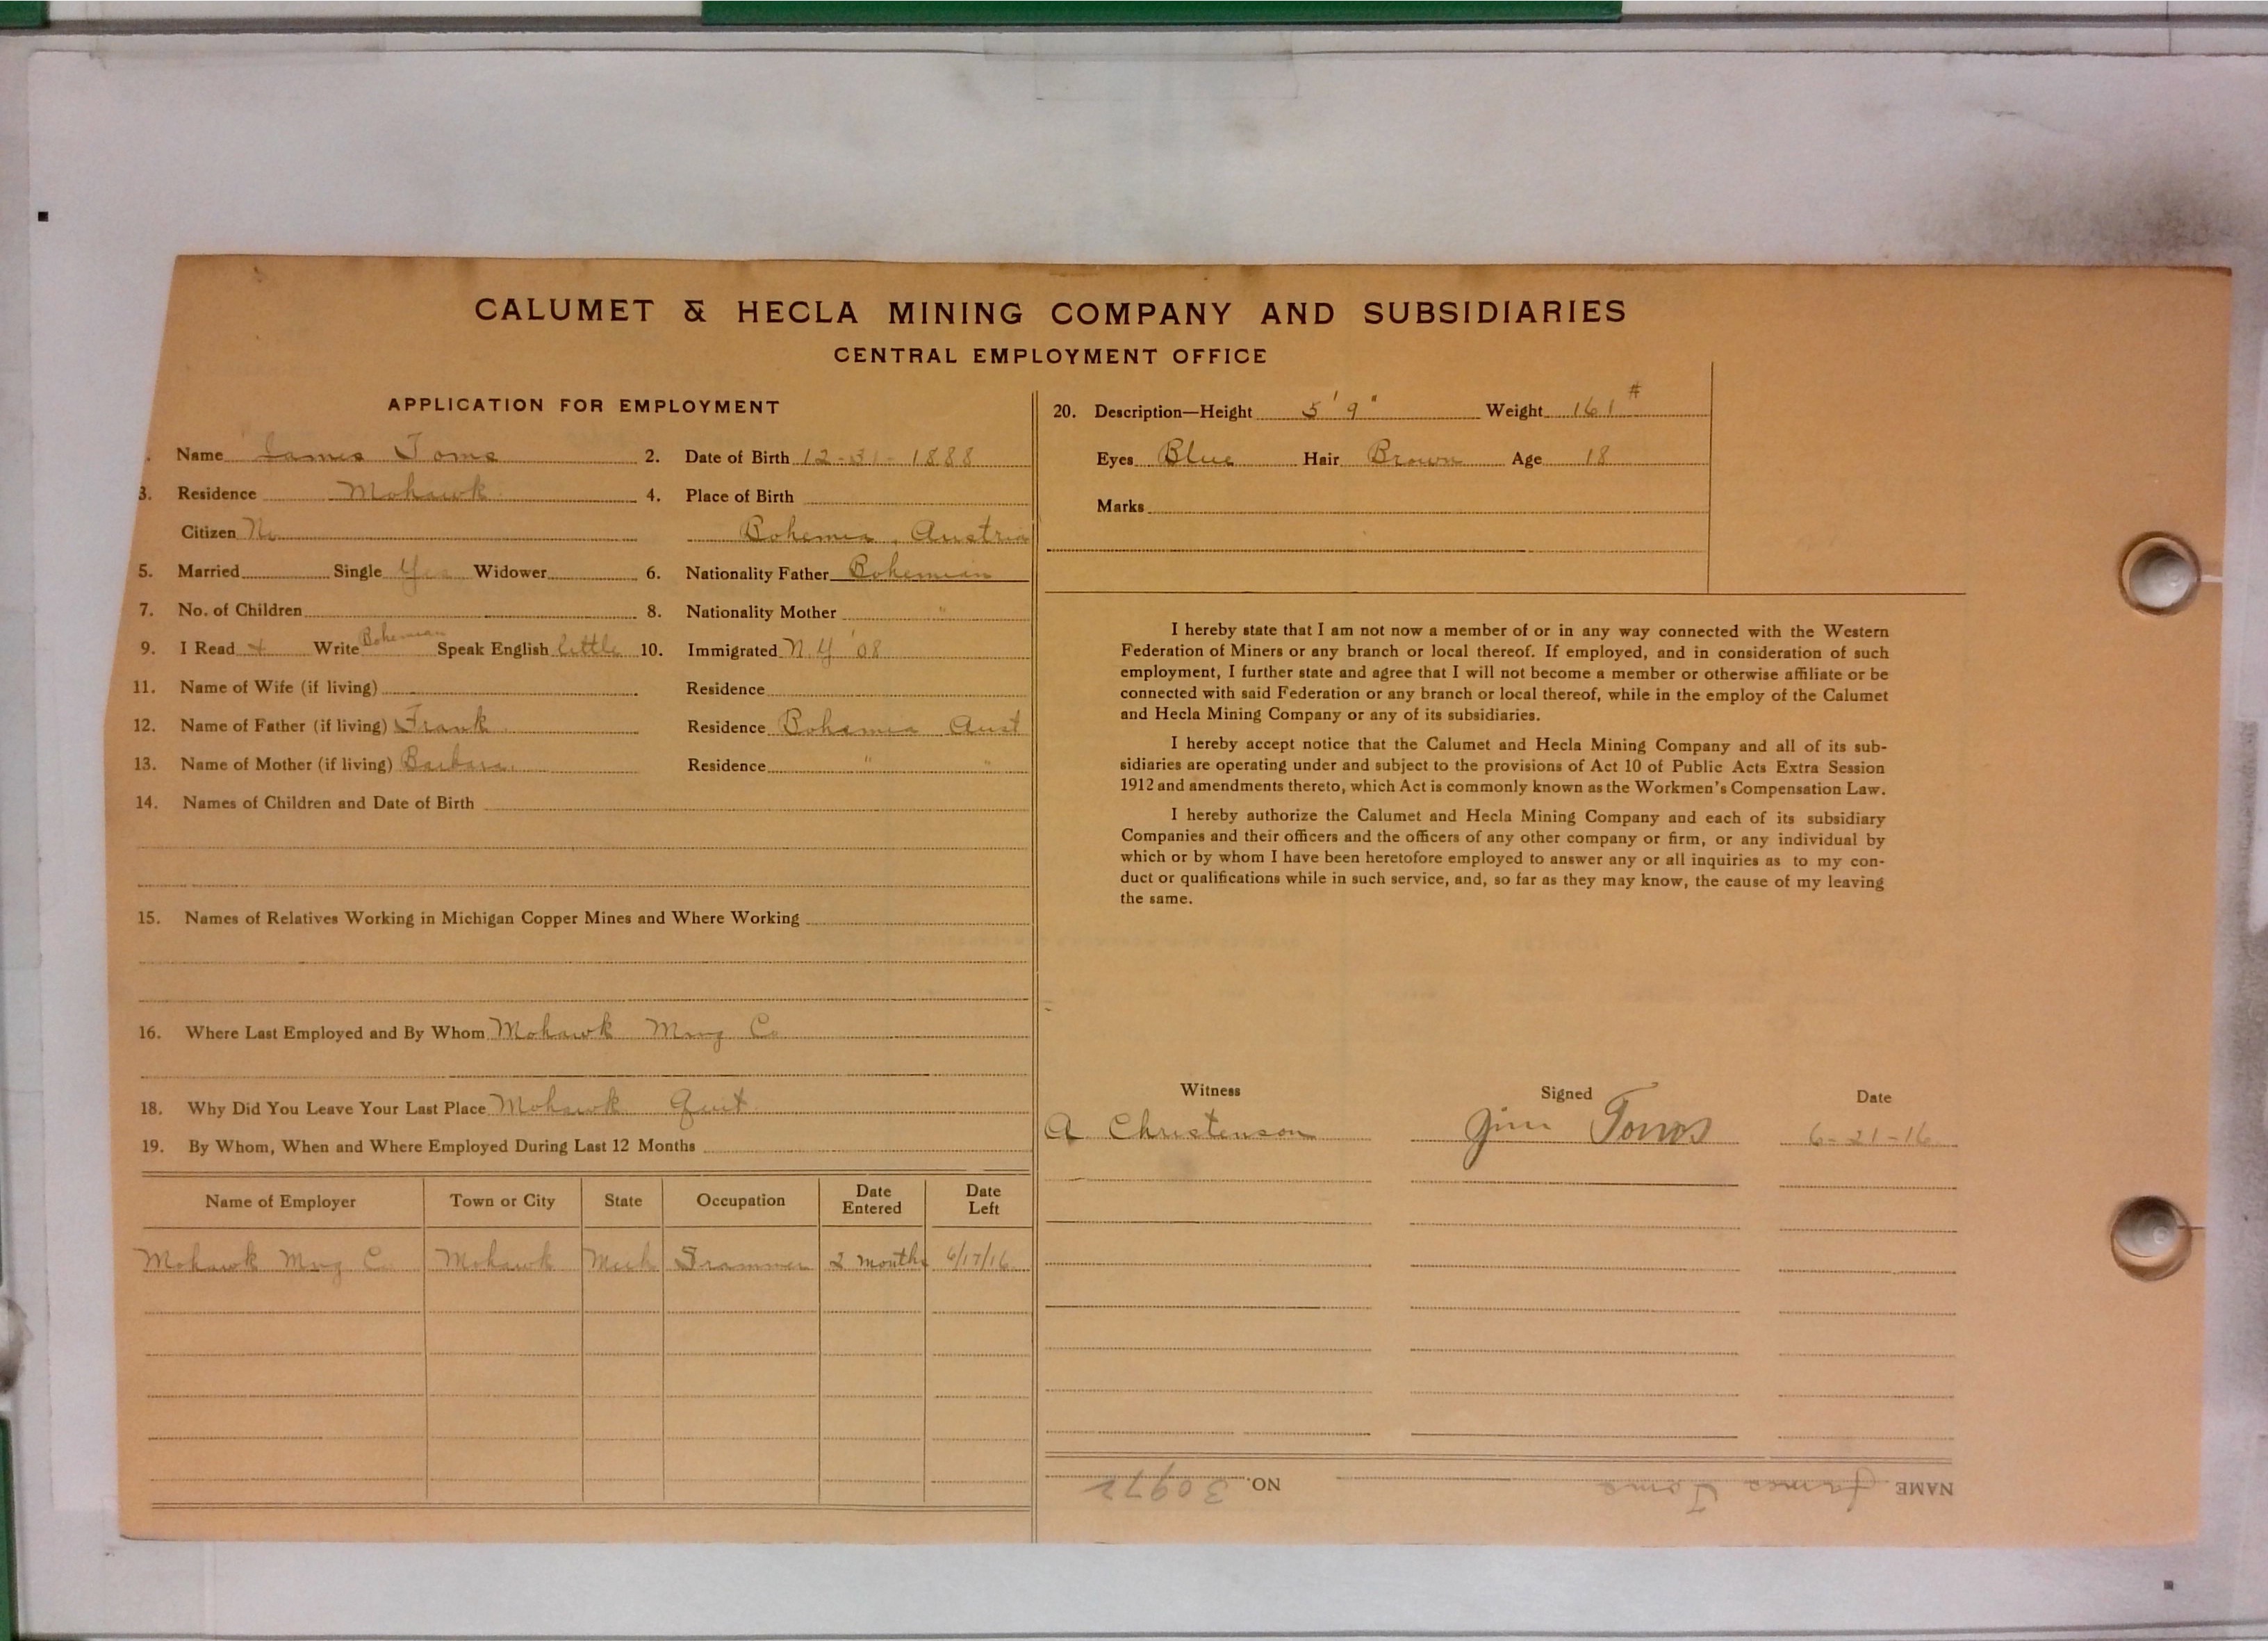 CALUMET & HECLA MINING COMPANY AND SUBSIDIARIES
CENTRAL EMPLOYMENT OFFICE
APPLICATION FOR EMPLOYMENT
. Name James Toms 2. Date of Birth 12-31-1888
3. Residence Mohawk 4. Place of Birth
Citizen No Bohemia, Austria
5. Married Single Yes Widower 6. Nationality Father Bohemian
7. No. of Children 8. Nationality Mother "
9. I Read + Write Bohemian Speak English little 10. Immigrated N.Y '08
11. Name of Wife (if living) Residence
12. Name of Father (if living) Frank Residence Bohemia Aust
13. Name of Mother (if living) Barbara Residence " "
14. Names of Children and Date of Birth
15. Names of Relatives Working in Michigan Copper Mines and Where Working
16. Where Last Employed and By Whom Mohawk Mng Co
18. Why Did You Leave Your Last Place Mohawk Quit
19. By Whom, When and Where Employed During Last 12 Months
Name of Employer Town or City State Occupation Date Entered Date Left
Mohawk Mng Co Mohawk Mich Trammer 2 months 6/17/16
20. Description—Height 5' 9" Weight 161#
Eyes Blue Hair Brown Age 18
Marks
I hereby state that I am not now a member of or in any way connected with the Western
Federation of Miners or any branch or local thereof. If employed, and in consideration of such
employment, I further state and agree that I will not become a member or otherwise affiliate or be
connected with said Federation or any branch or local thereof, while in the employ of the Calumet
and Hecla Mining Company or any of its subsidiaries.
I hereby accept notice that the Calumet and Hecla Mining Company and all of its sub-
sidiaries are operating under and subject to the provisions of Act 10 of Public Acts Extra Session
1912 and amendments thereto, which Act is commonly known as the Workmen's Compensation Law.
I hereby authorize the Calumet and Hecla Mining Company and each of its subsidiary
Companies and their officers and the officers of any other company or firm, or any individual by
which or by whom I have been heretofore employed to answer any or all inquiries as to my con-
duct or qualifications while in such service, and, so far as they may know, the cause of my leaving
the same.
Witness Signed Date
A Christenson Jim Toms 6-21-16
NAME James Toms NO. 30972